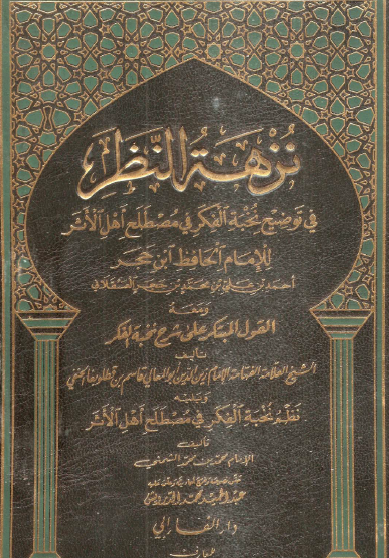 نُزْهَةُ النَّظَرِ
فِي تَوْضِيحِ نُخْبَةِ الْفِكَرِ فِي مُصْطَلَحِ أَهْلِ الْأَثَرِ
لِلإِمَامِ الْحَافِظِ ابْنِ حَجَرٍ
أحمد بن علي بن محمد بن حجر العسقلاني
ومعه
القول المبتكر على شرح نخبة الفكر
تأليف
الشيخ العلامة الإمام زين الدين أبو المعالي قاسم بن قطلوبغا الحنفي
ويليه
نَظْمُ نُخْبَةِ الْفِكَرِ فِي مُصْطَلَحِ أَهْلِ الْأَثَرِ
تأليف
الإمام محمد بن محمد الشمني
عبد الحميد محمد الدرويش
دار الفارابي
للمعارف